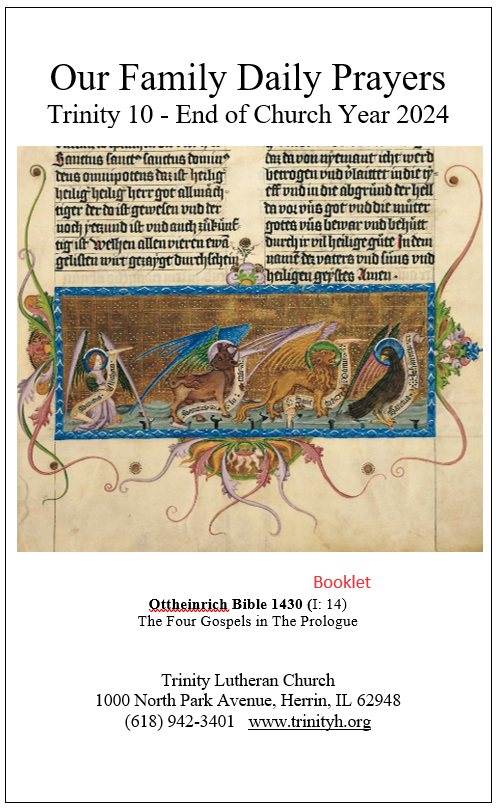 Our Family Daily Prayers
Trinity 10 - End of Church Year 2024
Sanctus sanctꝰ sanctus dominꝰ
deus omnipotens da ist heilig
heilig heilig herr got allmäch
tiger der do ist gewesen vnd der
noch yezund ist vnd auch zůkünf
tig ist Welhen allen vieren ewā
gelisten wirt gezaygt durch
daz da von nyemant icht werd
betrogen vnd in die ty
eff vnd in die abgründ der hell
da vor vns got vnd die můter
gotes vns bewar vnd behütt
durch ir vil heilige güte In dem
namē dez vaters vnd suns vnd
heiligen geystes Amen
Booklet
Ottheinrich Bible 1430 (I: 14)
The Four Gospels in The Prologue
Trinity Lutheran Church
1000 North Park Avenue, Herrin, IL 62948
(618) 942-3401 www.trinityh.org